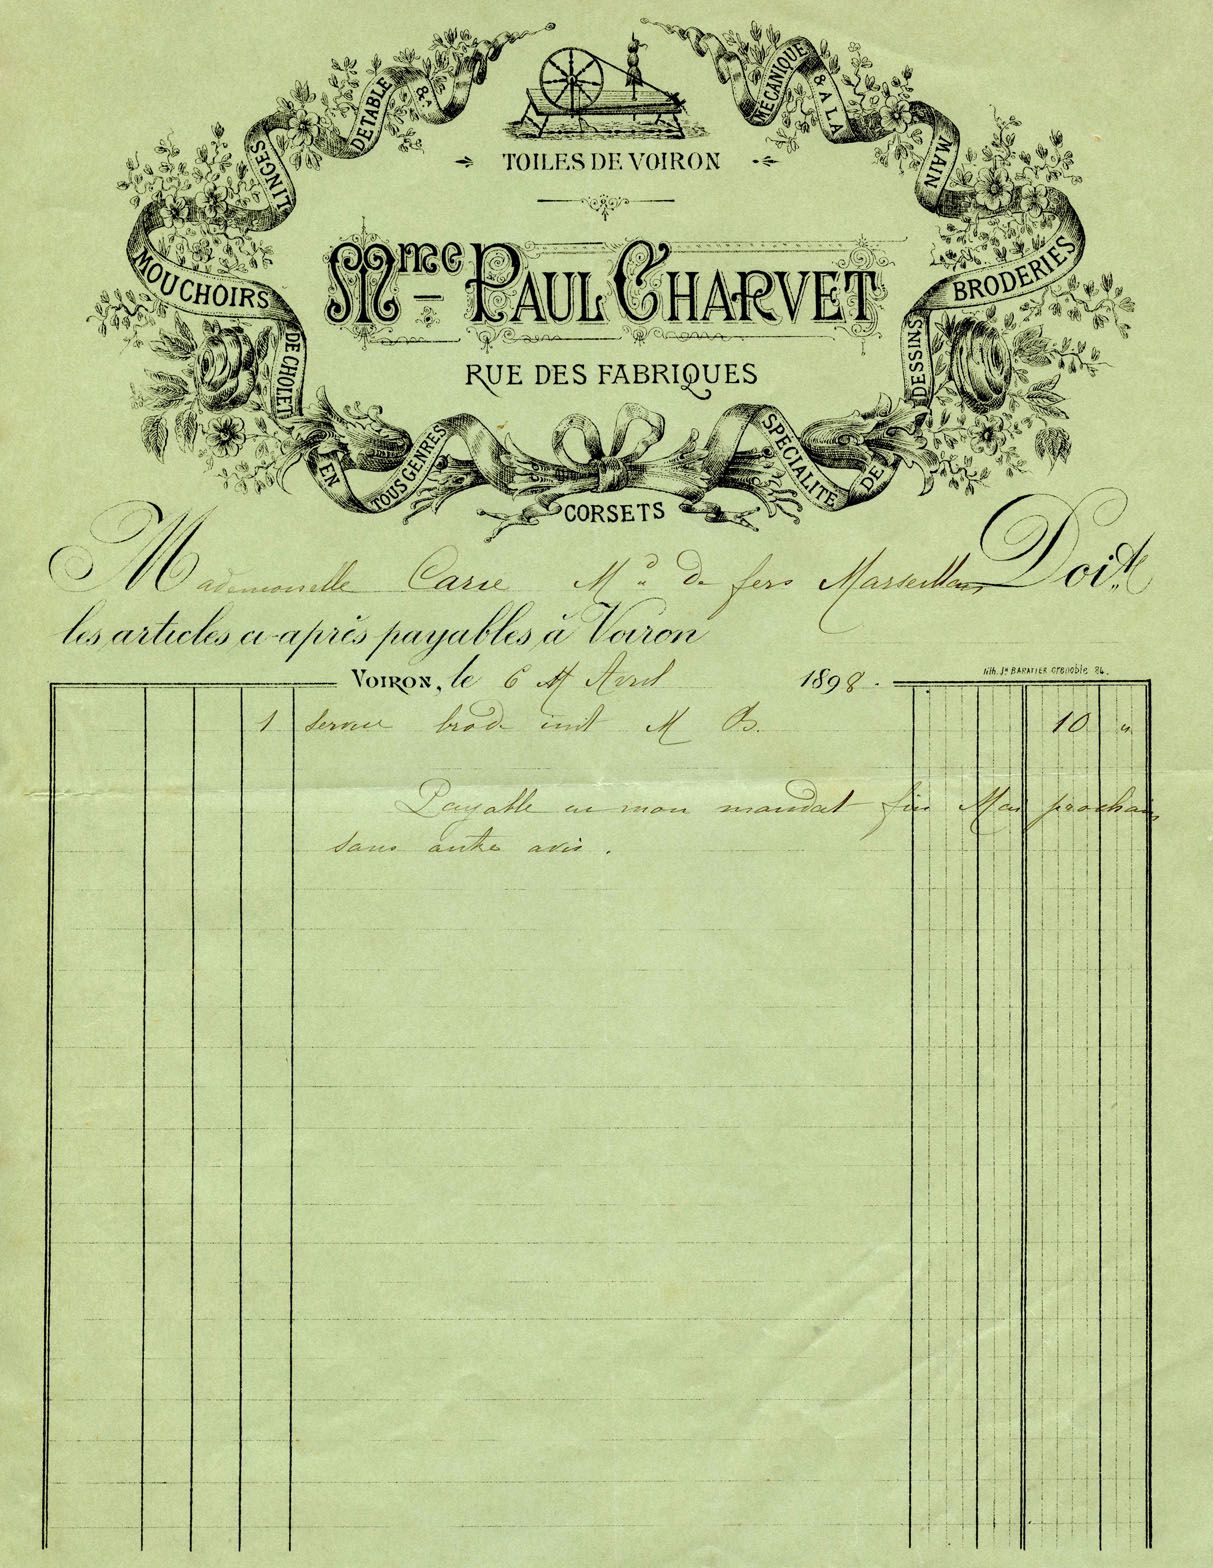 TOILES DE VOIRON
MOUCHOIRS DE CHOLET
LINGES DE TABLE & A
MÉCANIQUE & A LA MAIN
BRODERIES
DESSINS
Mme PAUL CHARVET
RUE DES FABRIQUES
EN TOUS GENRES
SPÉCIALITÉ DE
CORSETS
Mademoiselle Carie Md de fers Marseillan Doit
les articles ci-après payables à Voiron
VOIRON, le 6 Avril 1898.
Lith. Jh BARATIER Grenoble 86.
1 service brodé M B. 10 "
Payable en mon mandat fin Mai prochain
sans autre avis.